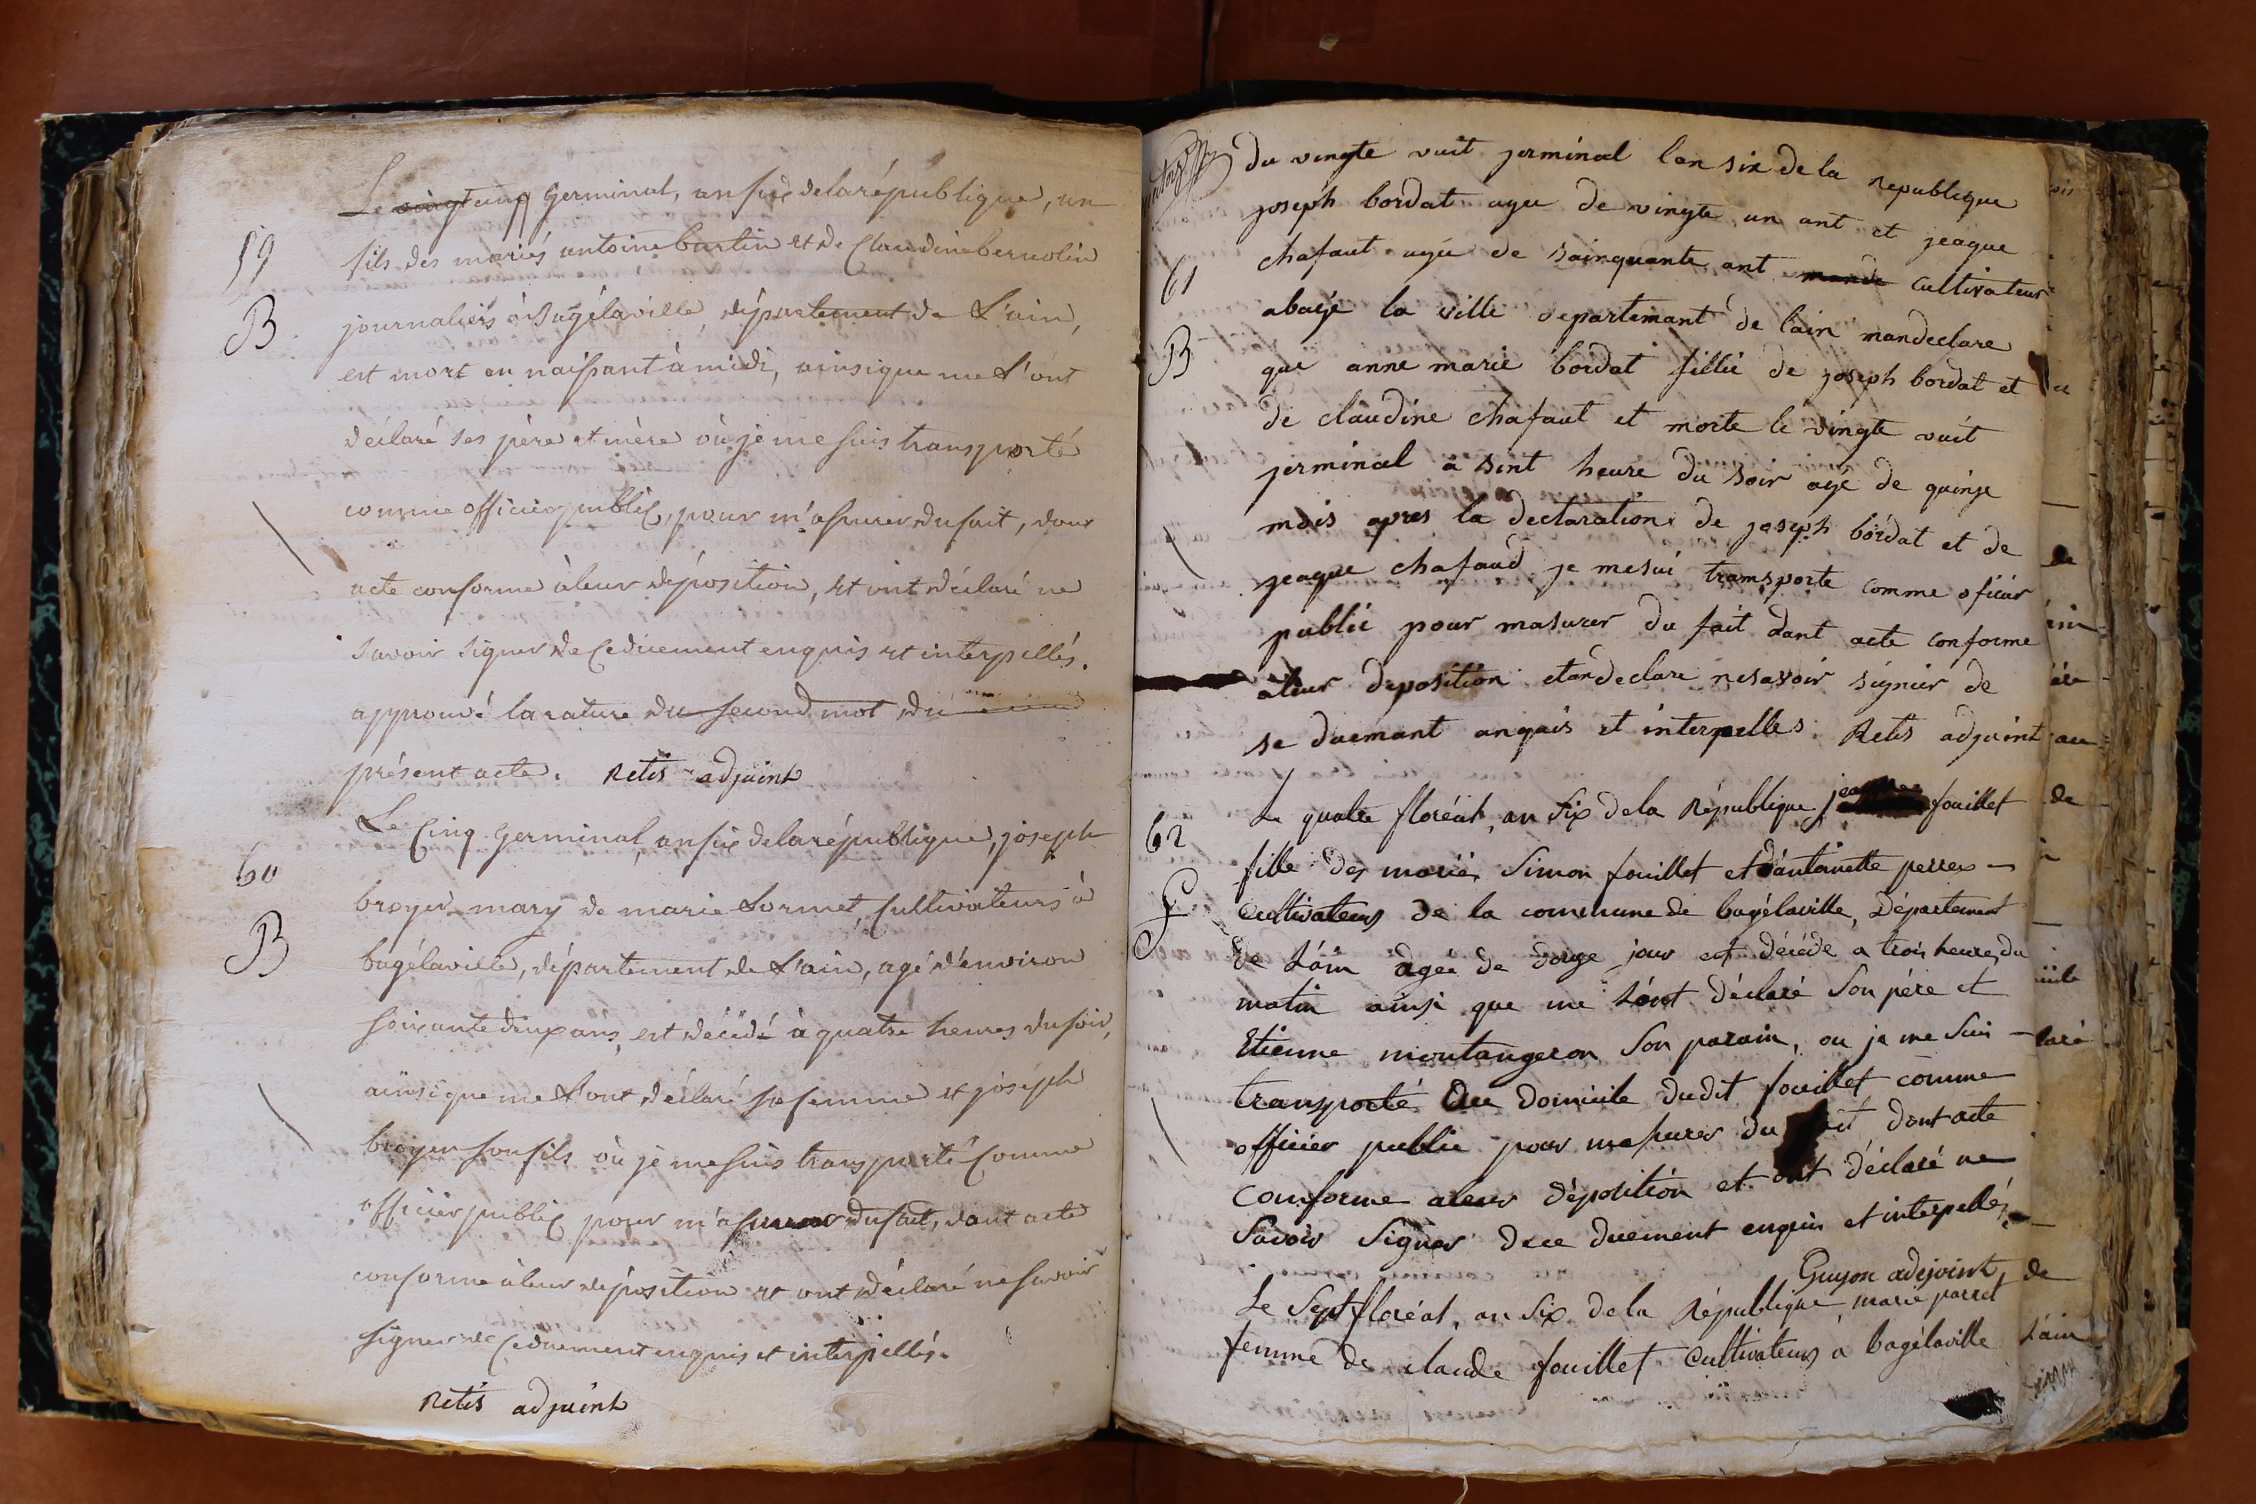 Le vingt cinq Germinal, an six de la république, un
59
fils des mariés antoine burtin et de Claudine bernolin
B
journaliers à Bagélaville, département de L'ain,
est mort en naissant à midi, ainsi que me L'ont
déclaré ses père et mère où je me suis transporté
comme officier public, pour m'assurer du fait, dont
acte conforme à leur déposition, et ont déclaré ne
savoir signer de Ce duement enquis et interpellés.
approuvé la rature du second mot du
présent acte. Retis adjoint
Le Cinq Germinal, an six de la république, joseph
60
broyer mary de marie Lormet, Cultivateurs à
B
bagélaville, département de L'ain, agé d'environ
soixante deux ans, est décédé à quatre heures du soir,
ainsi que me L'ont déclaré sa femme et joseph
broyer son fils où je me suis transporté Comme
officier public pour m'assurer du fait, dont acte
conforme à leur déposition et ont déclaré ne savoir
signer de Ce duement enquis et interpellés.
Retis adjoint
du vingte vuit jerminal lan six de la republique
joseph bordat agee de vingte un ant et jeaque
61
chafaut agée de sainquante ant mande cultivateur
abage la ville departemant de lain mandeclare
B
que anne marie bordat fillie de joseph bordat et
de claudine chafaut et morte le vingte vuit
jerminal a sint heure du soir agé de quinze
mois apres la declaration de joseph bordat et de
jeaque chafaud je mesui transporte comme oficier
public pour masurer du fait dant acte conforme
aleur deposition etandeclare nesavoir signier de
se duemant anquis et interpelles Retis adjoint
62
Le quatre floréal, an Six de la République fouillet
fille des mariés Simon fouillet et d'antoinette perrex
G
Cultivateurs de la commune de bagélaville, Département
De L'ain agée de douze jour est décédé a trois heures du
matin ainsi que me L'ont déclaré Son père et
Etienne montangeron Son parain, ou je me Suis
transporté au domicile dudit fouillet comme
officier public pour massurer du fait dont acte
Conforme aleur déposition et ont déclaré ne
Savoir Signer de ce duement enquis et interpellés
Guyon adejoint
Le Sept floréal, an Six de la République marie parret
femme de claude fouillet Cultivateurs à bagélaville